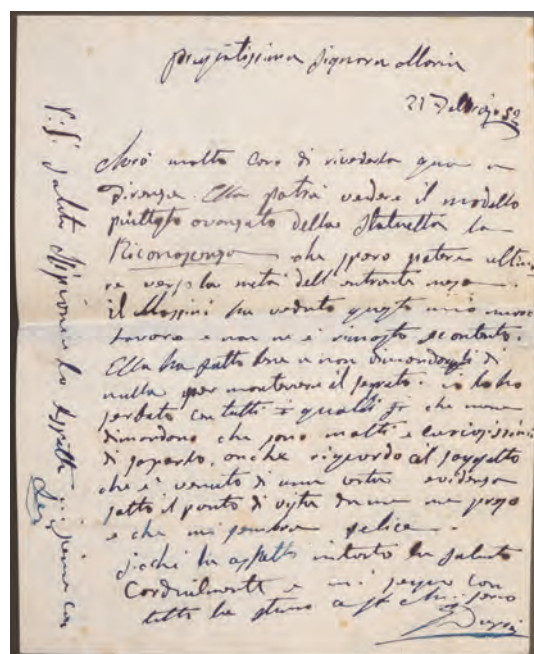 pregiatissima Signora Maria
21 Febbraio 52
Avrò molto caro di rivederla qua a
Firenze. Ella potrà vedere il modello
piuttosto avanzato della Statuetta la
Riconoscenza che spero potere ultima
re verso la metà dell'entrante mese.
il Mussini ha veduto questo mio nuovo
lavoro e non ne è rimasto scontento.
Ella ha fatto bene a non dimandargli di
nulla per mantenere il segreto. io lo ho
serbato con tutti
dimandono che sono molti e curiosissimi
di saperlo. anche riguardo al soggetto
che è venuto di una certa evidenza
sotto il punto di vista
e che mi sembra felice.
sicché la aspetto intanto la saluto
Cordialmente e mi segno con
tutta la stima
P.S. saluti lo aspetto insieme con
Lei